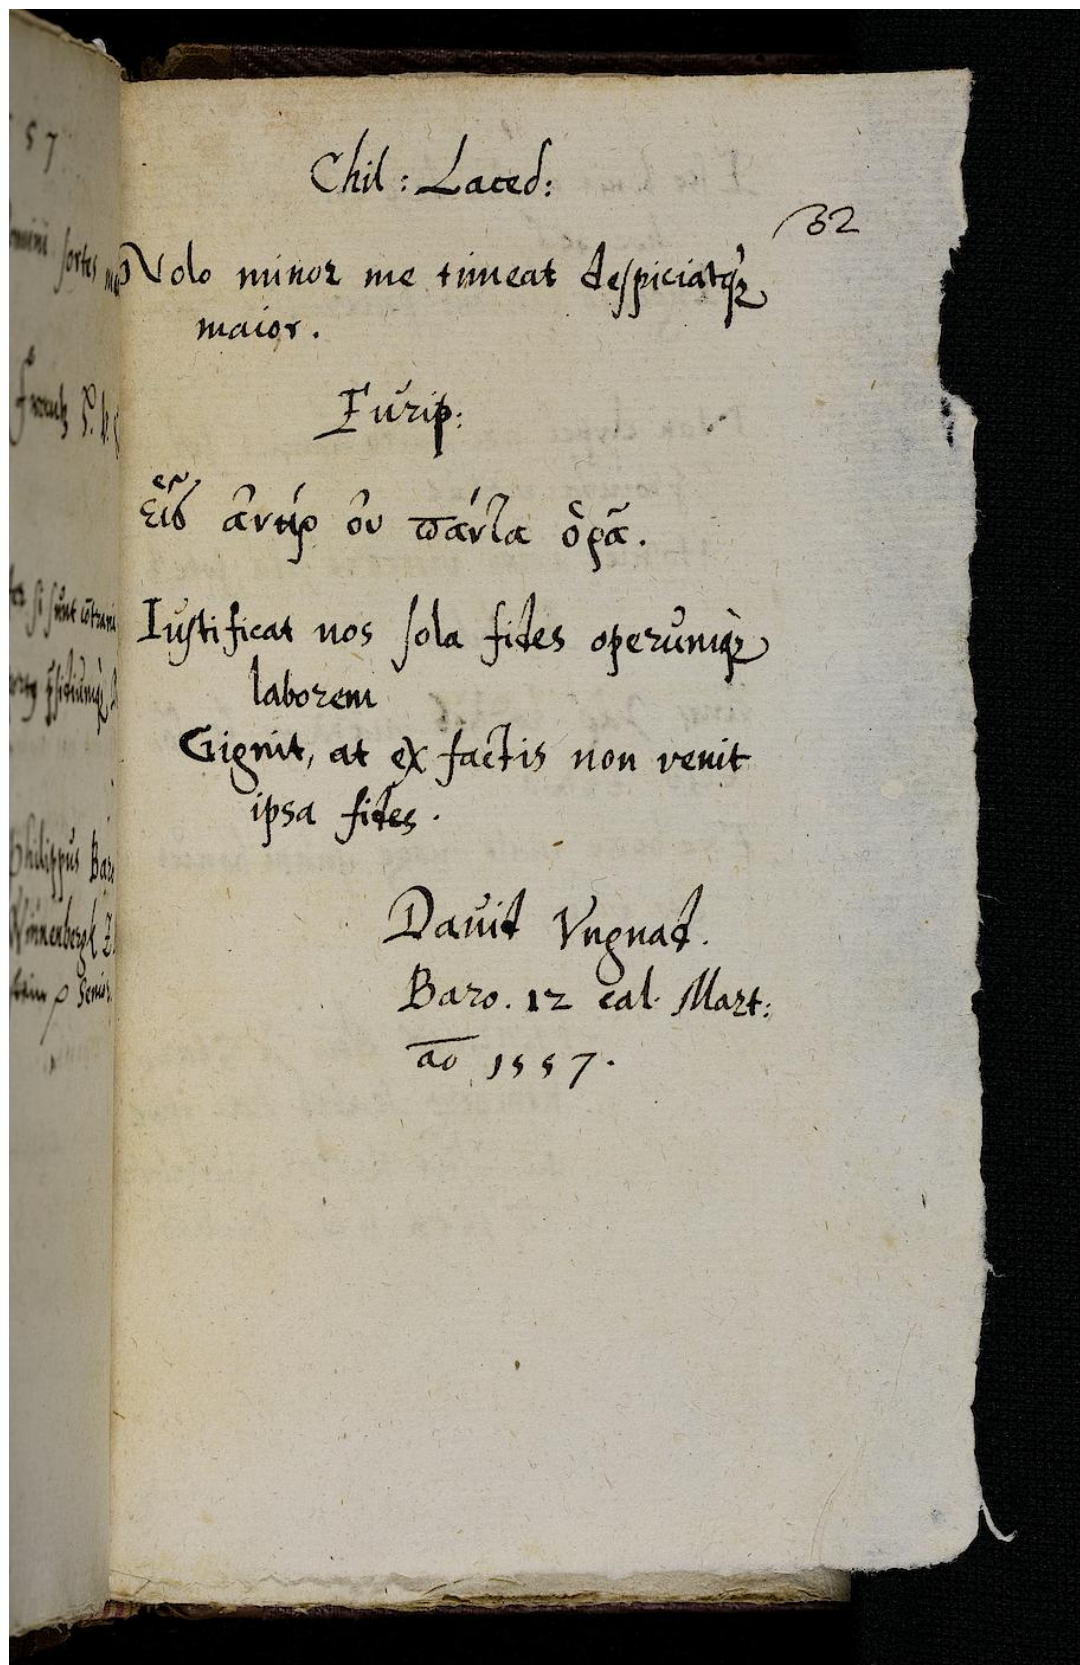 57
Chil: Laced:
32
Nolo minor me timeat despiciatq́ꝫ
maior.
Eurip:
Εἷς ἀνὴρ οὐ πάντα ὁρᾷ.
Iustificat nos sola fides operumq̀ꝫ
laborem
Gignit, at ex factis non venit
ipsa fides.
Dauid Vngnad.
Baro. 12 cal. Mart:
ao 1557.
sortes
si sunt
Philippus Baro